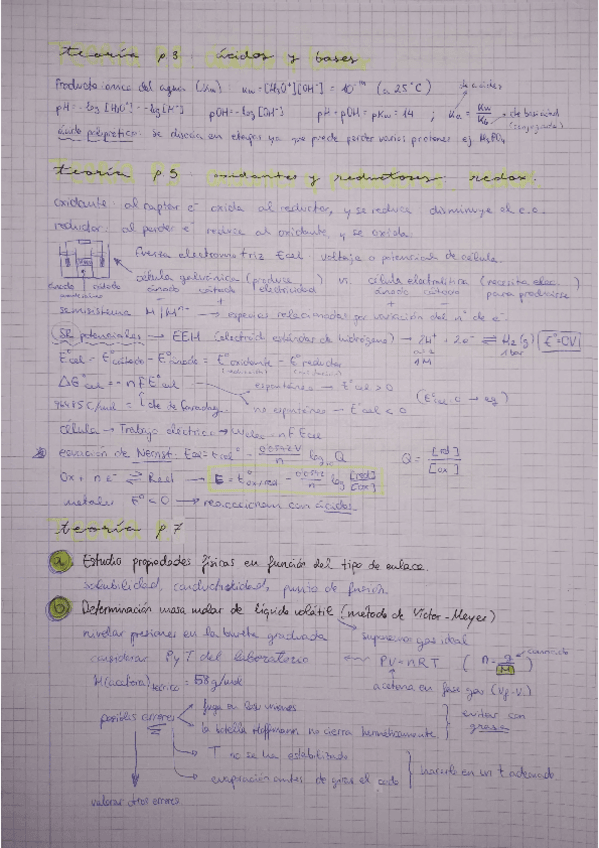 teoría p 3: ácidos y bases
Producto iónico del agua (Kw): Kw = [H3O+][OH-] = 10^-14 (a 25°C) de acidez
pH = -log [H3O+] = -log [H+] pOH = -log [OH-] pH + pOH = pKw = 14 ; Ka = Kw/Kb de basicidad (conjugada)
ácido poliprótico: se disocia en etapas ya que puede perder varios protones ej H3PO4
teoría p 5: oxidantes y reductores: redox.
oxidante: al captar e- oxida al reductor, y se reduce disminuye el e.o.
reductor: al perder e- reduce al oxidante, y se oxida
fuerza electromotriz Ecel: voltaje o potencial de célula.
célula galvánica (produce electricidad) vs. célula electrolítica (necesita elec. para producirse)
ánodo cátodo ánodo cátodo ánodo cátodo
semisistema M | M^n+ → especies relacionadas por variación del nº de e-
potenciales → EEH (electrodo estándar de hidrógeno) → 2H+ + 2e- ⇌ H2(g) E° = 0V
1M 1 bar
E°cel = E°cátodo - E°ánodo = E°oxidante - E°reductor
ΔG°cel = -nFE°cel espontáneo - E°cel > 0
96485 C/mol = cte de Faraday no espontáneo - E°cel < 0
célula → Trabajo eléctrico → Welec = nFEcel
ecuación de Nernst: Ecel = E°cel - 0'0592V/n log10 Q Q = [red]/[ox]
Ox + n e- ⇌ Red → E = E°ox/red - 0'0592/n log [red]/[ox]
metales E° < 0 → reaccionan con ácidos.
teoría p 7
a Estudio propiedades físicas en función del tipo de enlace.
solubilidad, conductividad, punto de fusión
b Determinación masa molar de líquido volátil (método de Victor-Meyer)
nivelar presiones en la bureta graduada suponemos gas ideal
considerar P y T del laboratorio PV = nRT (n = g/M) conocido
M(acetona)teórico = 58 g/mol acetona en fase gas (Vf - Vi)
posibles errores fuga en las uniones evitar con grasa
la botella Hoffmann no cierra herméticamente
T no se ha estabilizado
evaporación antes de girar el codo hacerlo en un t adecuado
valorar otros errores